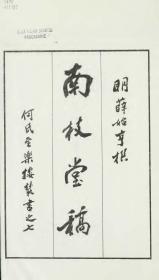 明薛始亨撰
南枝堂稿
何氏至樂樓叢書之七